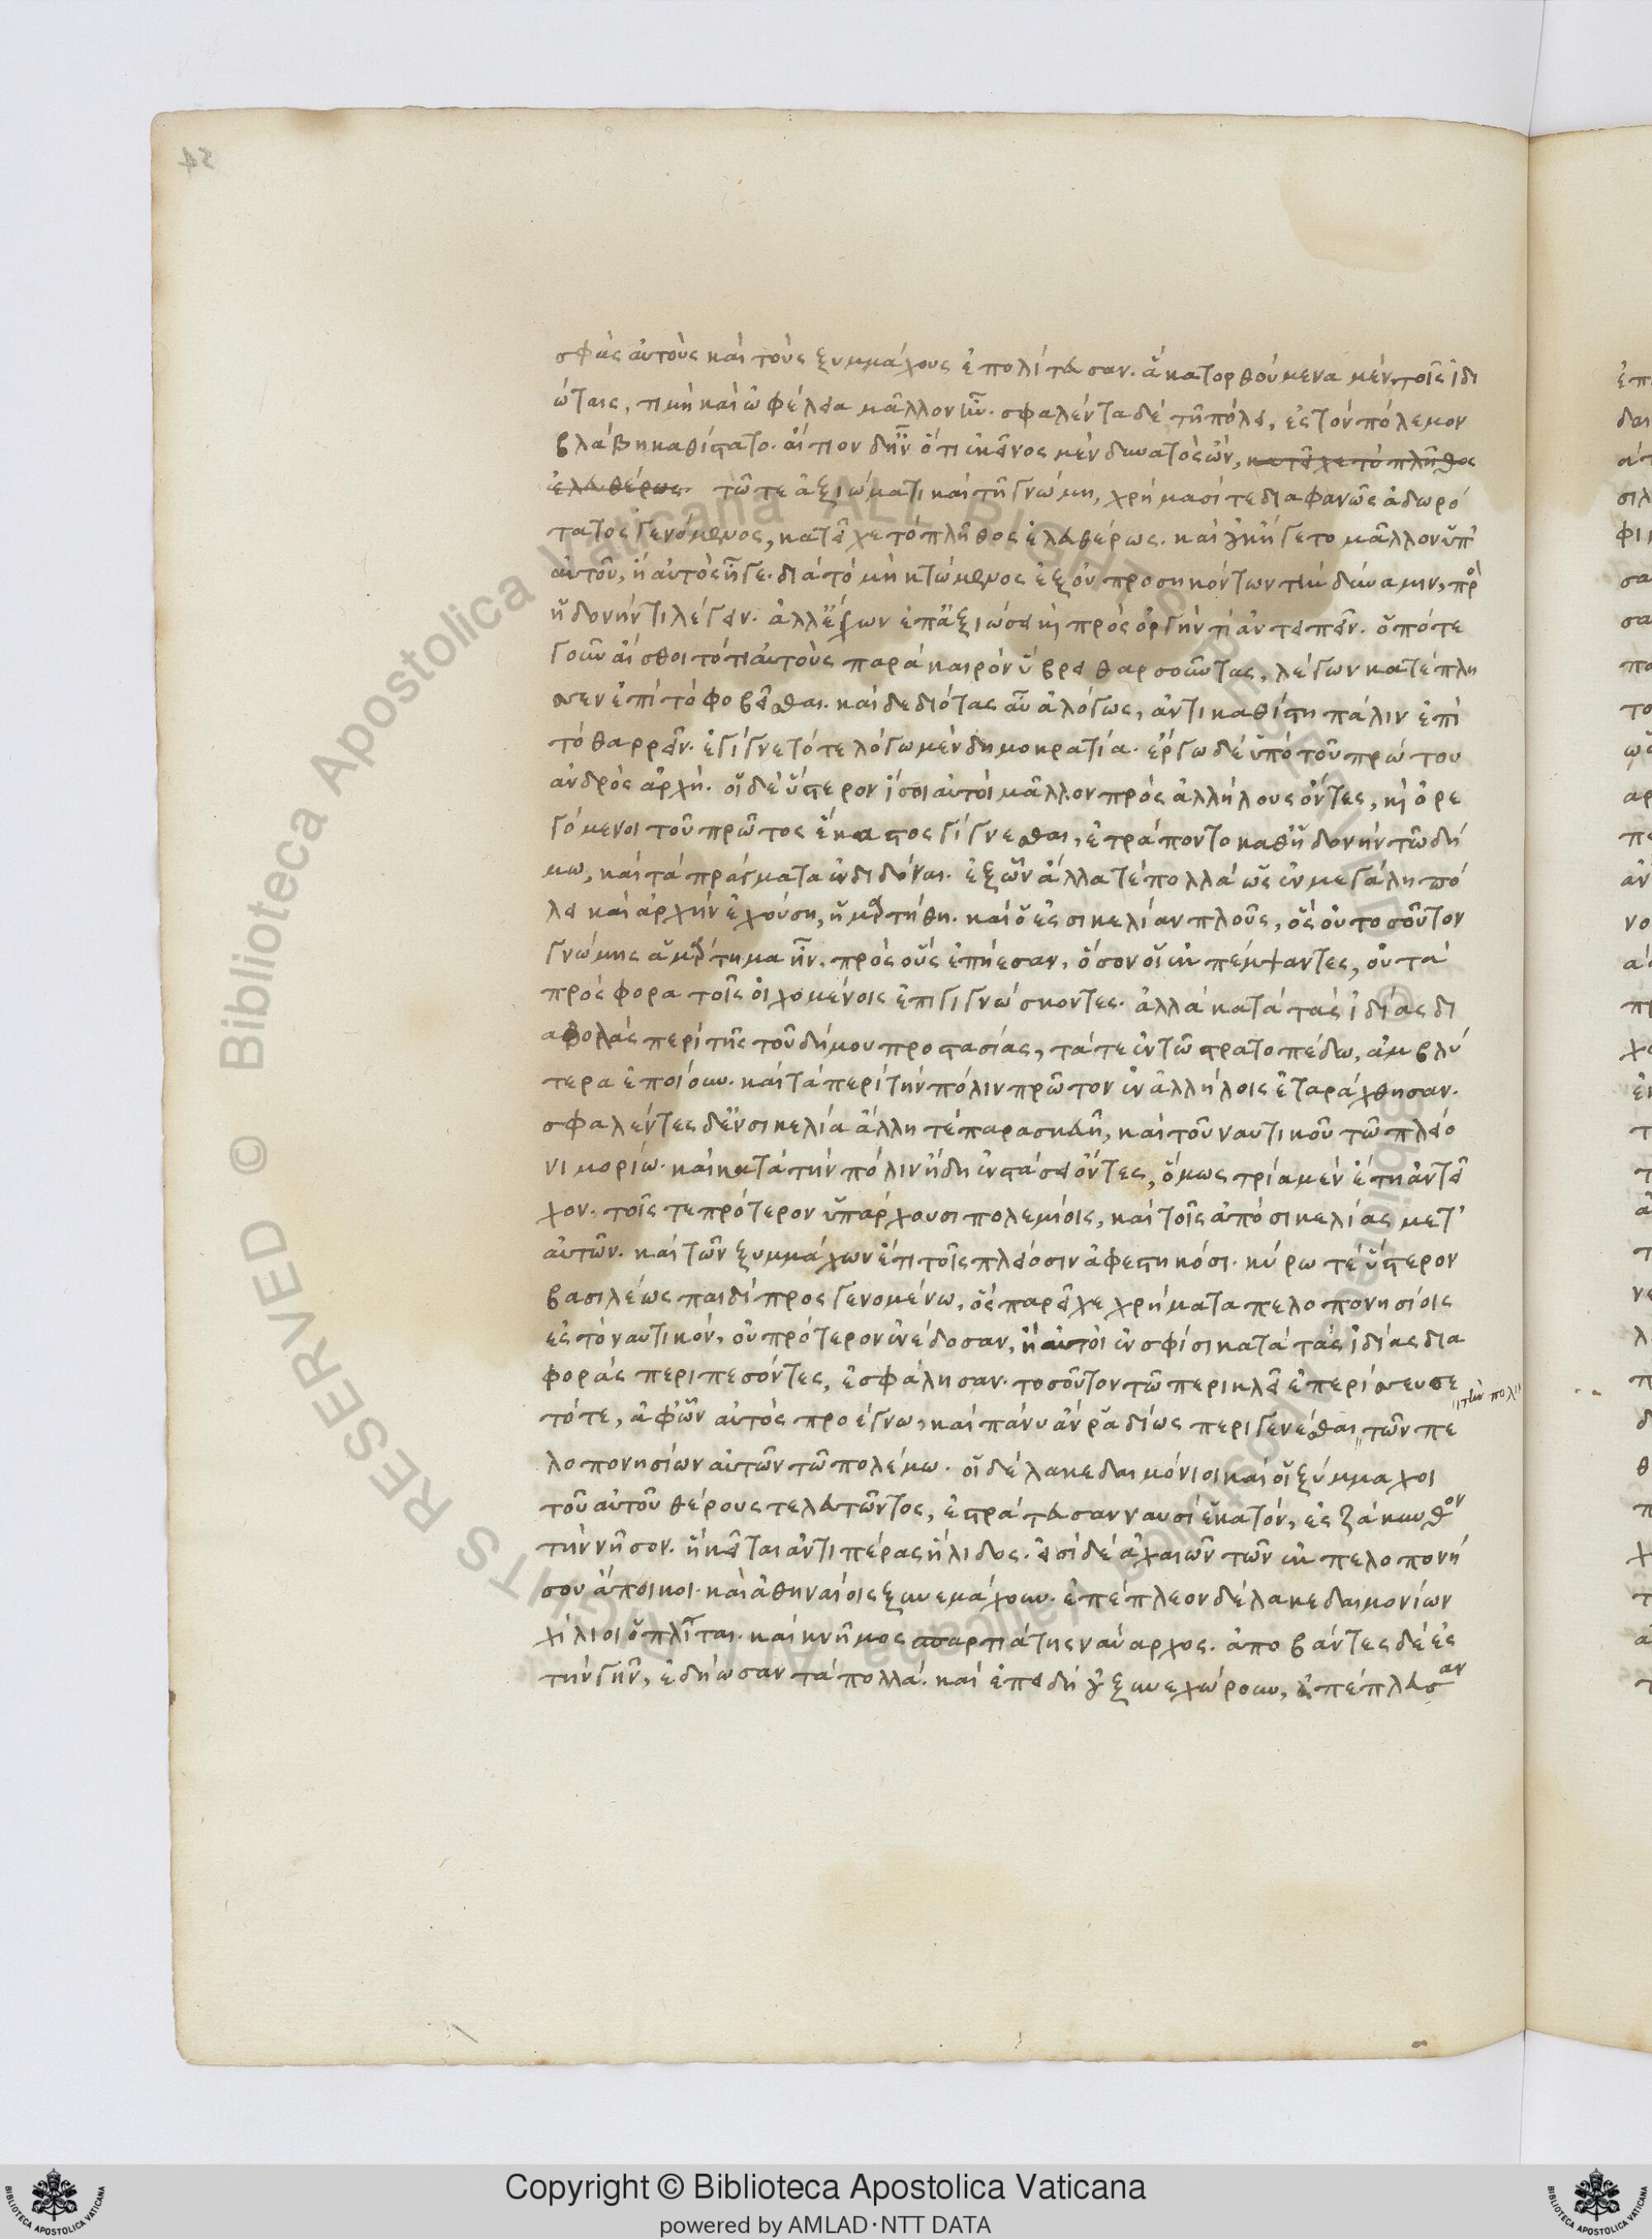 σφὰς αὐτοὺς καὶ τοὺς ξυμμάχους ἐπολίτευσαν. ἃ κατορθούμενα μὲν, τοῖς ἰδι
ώταις, τιμὴ καὶ ὠφέλεια μᾶλλον ἦν. σφαλέντα δὲ τῆ πόλει, ἐς τὸν πόλεμον
βλάβη καθίστατο. αἴτιον δ' ἦν ὅτι ἐκεῖνος μὲν δυνατὸς ὢν, κατεῖχε τὸ πλῆθος
ἐλευθέρως. τῶ τε ἀξιώματι καὶ τῆ γνώμη, χρήμασί τε διαφανῶς ἀδωρό
τατος γενόμενος, κατεῖχε τὸ πλῆθος ἐλευθέρως. καὶ οὐκ ἤγετο μᾶλλον ὑπ'
αὐτοῦ, ἢ αὐτὸς ἦγε. διὰ τὸ μὴ κτώμενος ἐξ οὐ προσηκόντων τὴν δύναμιν, πρὸς
ἡδονήν τι λέγειν. ἀλλ' ἔχων ἐπ' ἀξιώσει καὶ πρὸς ὀργήν τι ἀντειπεῖν. ὁπότε
γοῦν αἴσθοιτό τι αὐτοὺς παρὰ καιρὸν ὕβρει θαρσοῦντας, λέγων κατέπλη
σσεν ἐπὶ τὸ φοβεῖσθαι. καὶ δεδιότας αὖ ἀλόγως, ἀντικαθίστη πάλιν ἐπὶ
τὸ θαρρεῖν. ἐγίγνετό τε λόγω μὲν δημοκρατία. ἔργω δὲ ὑπὸ τοῦ πρώτου
ἀνδρὸς ἀρχή. οἱ δὲ ὕστερον ἴσοι αὐτοὶ μᾶλλον πρὸς ἀλλήλους ὄντες, καὶ ὀρε
γόμενοι τοῦ πρῶτος ἕκαστος γίγνεσθαι, ἐτράποντο καθ' ἡδονὴν τῶ δή
μω, καὶ τὰ πράγματα ἐνδιδόναι. ἐξ ὧν ἄλλα τὲ πολλὰ ὡς ἐν μεγάλη πό
λει καὶ ἀρχὴν ἐχούση, ἡμαρτήθη. καὶ ὁ ἐς σικελίαν πλοῦς, ὃς οὐ τοσοῦτον
γνώμης ἁμάρτημα ἦν. πρὸς οὓς ἐπήεσαν, ὅσον οἱ ἐκπέμψαντες, οὐ τὰ
πρόσφορα τοῖς οἰχομένοις ἐπιγιγνώσκοντες. ἀλλὰ κατὰ τὰς ἰδίας δι
αβολὰς περὶ τῆς τοῦ δήμου προστασίας, τά τε ἐν τῶ στρατοπέδω, ἀμβλύ
τερα ἐποίουν. καὶ τὰ περὶ τὴν πόλιν πρῶτον ἐν ἀλλήλοις ἐταράχθησαν.
σφαλέντες δ' ἐν σικελία ἄλλη τὲ παρασκευῆ, καὶ τοῦ ναυτικοῦ τῶ πλείο
νι μορίω. καὶ κατὰ τὴν πόλιν ἤδη ἐν στάσει ὄντες, ὅμως τρία μὲν ἔτη ἀντεῖ
χον. τοῖς τε πρότερον ὑπάρχουσι πολεμίοις, καὶ τοῖς ἀπὸ σικελίας μετ'
αὐτῶν. καὶ τῶν ξυμμάχων ἔτι τοῖς πλείοσιν ἀφεστηκόσι. κύρω τὲ ὕστερον
βασιλέως παιδὶ προσγενομένω, ὃς παρεῖχε χρήματα πελοπονησίοις
ἐς τὸ ναυτικόν, οὐ πρότερον ἐνέδοσαν, ἢ αὐτοὶ ἐν σφίσι κατὰ τὰς ἰδίας δια
φορὰς περιπεσόντες, ἐσφάλησαν. τοσοῦτον τῶ περικλεῖ ἐπερίσσευσε
τότε, ἀφ' ὧν αὐτὸς προέγνω, καὶ πάνυ ἂν ῥαδίως περιγενέσθαι τῶν πε
λοπονησίων αὐτῶν τῶ πολέμω. οἱ δὲ λακεδαιμόνιοι καὶ οἱ ξύμμαχοι
τοῦ αὐτοῦ θέρους τελευτῶντος, ἐστράτευσαν ναυσὶ ἑκατόν, ἐς ζάκυνθον
τὴν νῆσον. ἣ κεῖται ἀντιπέρας ἤλιδος. εἰσὶ δὲ ἀχαιῶν τῶν ἐκ πελοπονή
σου ἄποικοι. καὶ ἀθηναίοις ξυνεμάχουν. ἐπέπλεον δὲ λακεδαιμονίων
χίλιοι ὁπλῖται. καὶ κνῆμος σπαρτιάτης ναύαρχος. ἀποβάντες δὲ ἐς
τὴν γῆν, ἐδήωσαν τὰ πολλά. καὶ ἐπειδὴ οὐ ξυνεχώρουν, ἀπέπλευσαν
Copyright © Biblioteca Apostolica Vaticana
powered by AMLAD·NTT DATA